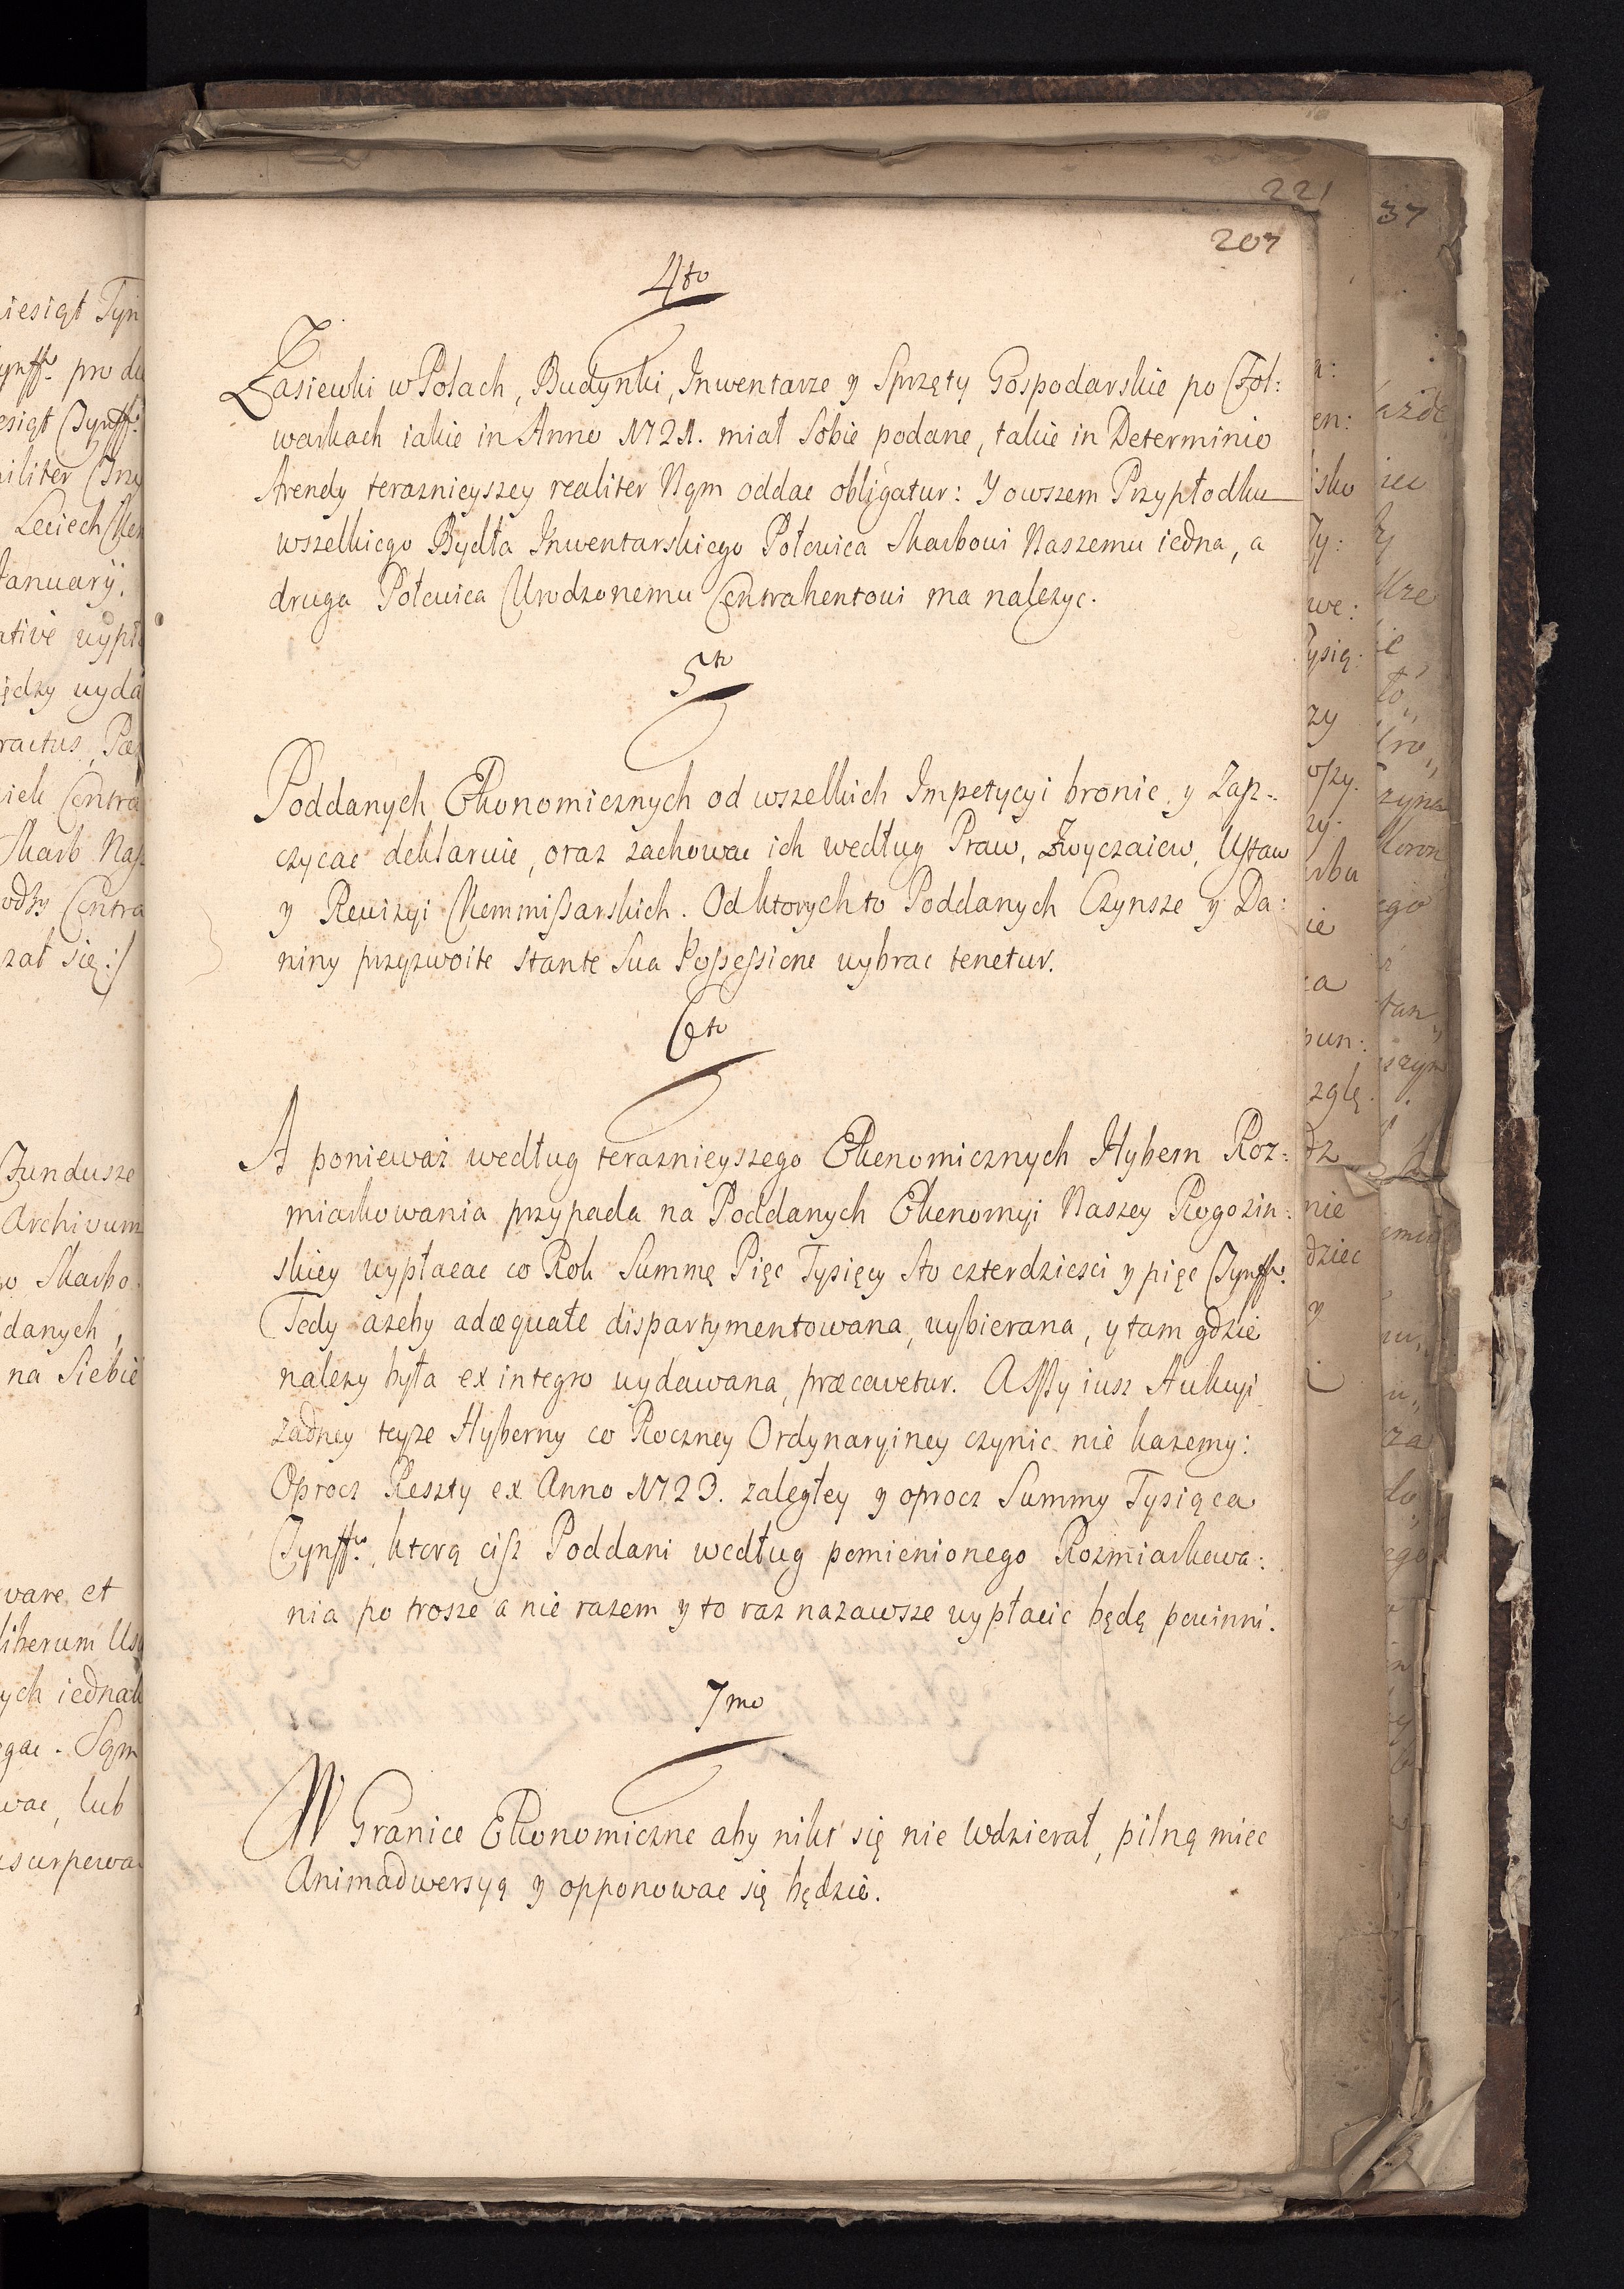 221
37
207
4to
Zasiewki w Polach, Budynki, Inwentarze y Sprzęty Gospodarskie po Fol:
warkach iakie in Anno 1721. miał Sobie podane, takie in Determinio
Arendy teraznieyszey realiter Ngm oddac obligatur: Y owszem Przypłodku
wszelkiego Bydła Inwentarskiego Połowica Skarbowi Naszemu iedna, a
druga Połowica Urodzonemu Contrahentowi ma nalezyc.
5to
Poddanych Ekonomicznych od wszelkich Impetycyi bronic y Zasz-
czycac deklaruie, oraz zachowac ich według Praw, Zwyczaiow, Ustaw
y Rewizyi Kommissarskich. Od ktorych to Poddanych Czynsze y Da:
niny przyzwoite stante Sua Possessione wybrac tenetur.
6to
A ponieważ według teraznieyszego Ekonomicznych Hybern Roz:
miarkowania przypada na Poddanych Ekonomyi Naszey Rogozin:
skiey wypłacac co Rok Summę Pięc Tysięcy Sto czterdziesci y pięc Tynffw.
Tedy azeby adæquate dispartymentowana, wybierana, y tam gdzie
nalezy była ex integro wydawana, præcavetur. Assz iusz Aukcyi
żadney teyze Hyberny co Roczney Ordynaryiney czynic nie kazemy:
Oprocz Reszty ex Anno 1723. zaległey y oprocz Summy Tysiąca
Tynffw. ktorą cisz Poddani według pomienionego Rozmiarkowa:
nia po trosze a nie razem y to raz nazawsze wypłacic będą powinni.
7mo
W Granice Ekonomiczne aby nikt się nie wdzierał, pilną miec
Animadwersyą y opponowac się będzie.